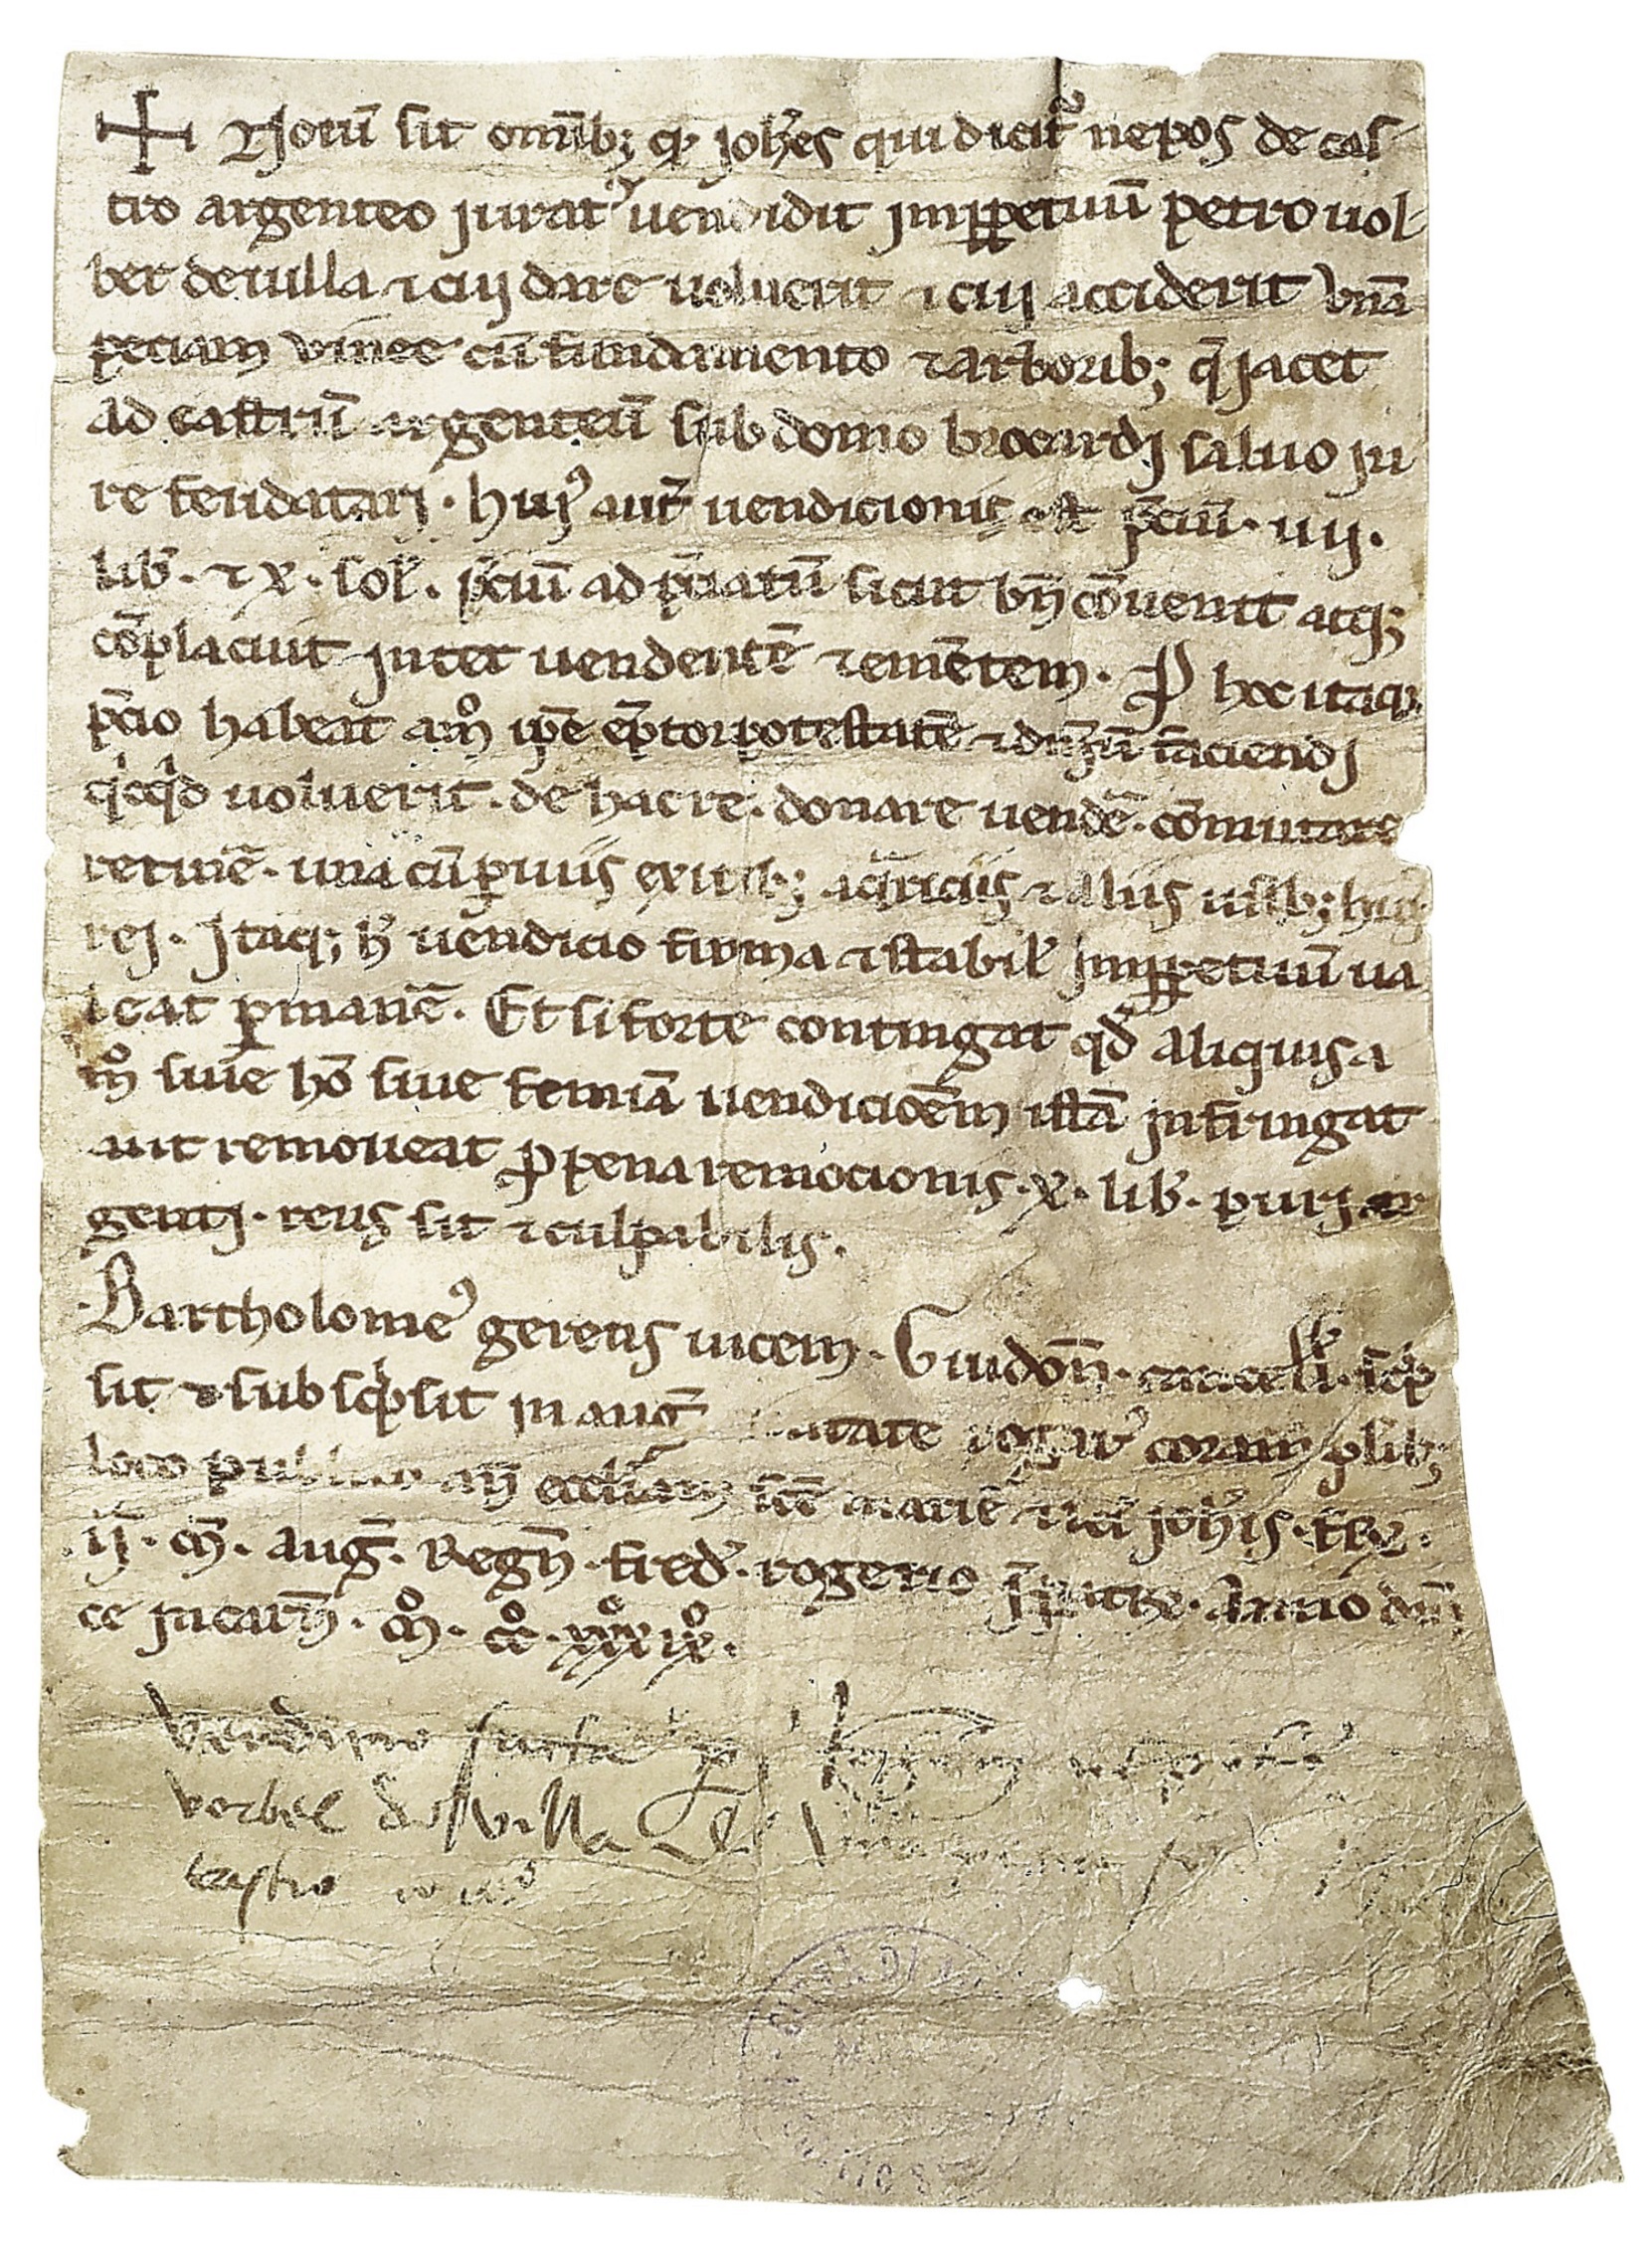 Notū sit omīb; q̇ joh̄es qui dicit᷑ nepos de cas-
tro argenteo jurat᷑ vendidit jmp̱petuū petro uol-
ber de uilla ⁊ cuj dare voluerit ⁊ cuj acciderit vnā
peciam vinee cū fundamento ⁊ arborib; q̄ jacet
ad castrū argenteū sub domo brocardj saluo ju
re feudatarj · huj᷒ aut̄ uendicionis est p̄ciū · vij ·
lib̄ · ⁊ x · sol̄ · p̄ciū adp̄ciatū sicut bn̄ cōuenit atq;
cōplacuit inter uendentē ⁊ emētem · P̱ hoc itaq;
p̄cio habeat am̊ ip̄e ēptor potestatē faciendj
qⁱcqⁱd uoluerit · de hac re · donare uendē · cōmutare
retinē · una cū p̱uiis exitib; ⁊ aliis usib; huj᷒
rej · Jtaq; h̄ uendicio firma ⁊ stabil̄ jmp̱petuū ua
leat p̱manē · Et si forte contingat qd̄ aliquis a
m̊ siue hō siue femīa uendicioēm istā jnfringat
aut remoueat ꝓ pena remocionis · x · lib̄ · purj ar
gentj · reus sit ⁊ culpabilis ·
Bartholome᷒ gerens uicem · Guidon̄ · cancell̄ · sc̄p
sit ⁊ subsc̄psit in aug᷑ ciuitate rogat᷒ coram plib;
loco publico an̄ eccl̄iam sc̄e marie ⁊ sc̄i joh̄is · fr̄ ·
ij · m̄ · aug᷑ · Regn̄ · fred̄ · rogerio Anno dn̄j
ce jncarn̄ · m̊ · cc̊ · xxx̊ ix̊ ·
Vendicio facta p̱
vorbel de villa
castro